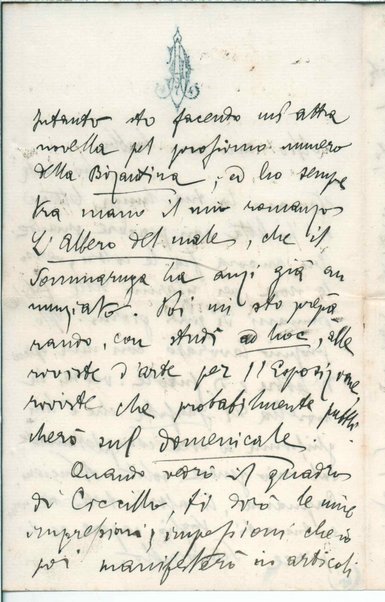 Intanto sto facendo un'altra
novella pel prossimo numero
della Bizantina, ed ho sempre
tra mano il mio romanzo
L'albero del male, che il
Sommaruga ha anzi già an
nunziato. Poi mi sto prepa
rando, con studi ad hoc, alle
riviste d'arte per l'Esposizione,
riviste che probabilmente pubbli
cherò sul domenicale.
Quando vedrò il quadro
di Coccillo, ti dirò le mie
impressioni, impressioni che io
poi manifesterò in articoli